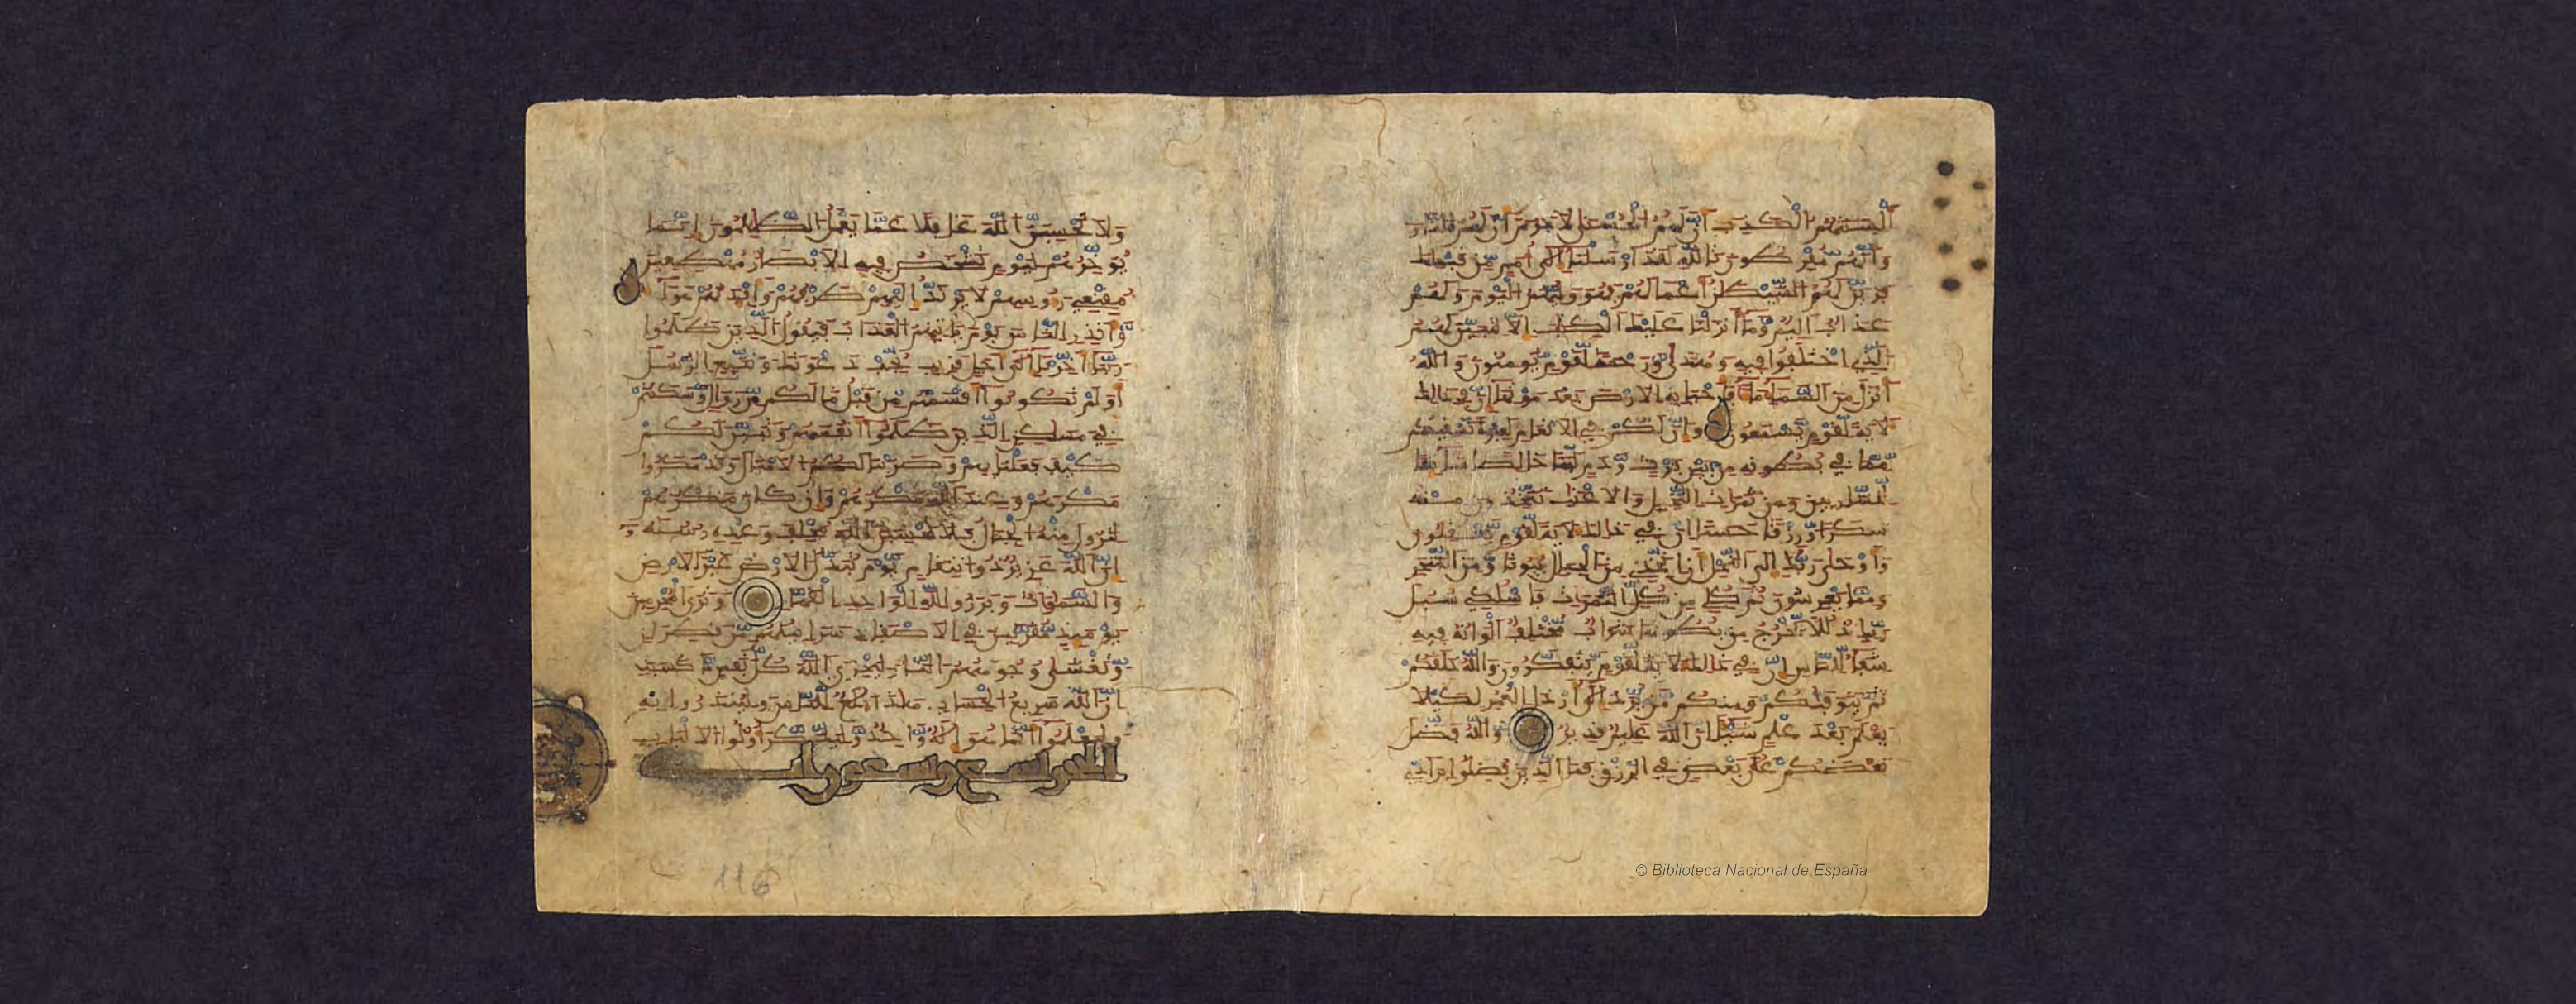 ألسنتهم الكذب أن لهم الحسنى لا جرم أن لهم النار
وأنهم مفرطون تالله لقد أرسلنا إلى أمم من قبلك
فزين لهم الشيطن أعملهم فهو وليهم اليوم ولهم
عذاب أليم وما أنزلنا عليك الكتب إلا لتبين لهم
الذي اختلفوا فيه وهدى ورحمة لقوم يومنون والله
أنزل من السماء ماء فأحيا به الأرض بعد موتها إن في ذلك
لآية لقوم يسمعون وإن لكم في الأنعم لعبرة نسقيكم
مما في بطونه من بين فرث ودم لبنا خالصا سائغا
للشربين ومن ثمرات النخيل والأعنب تتخذون منه
سكرا ورزقا حسنا إن في ذلك لآية لقوم يعقلون
وأوحى ربك إلى النحل أن اتخذي من الجبال بيوتا ومن الشجر
ومما يعرشون ثم كلي من كل الثمرات فاسلكي سبل
ربك ذللا يخرج من بطونها شراب مختلف ألوانه فيه
شفاء للناس إن في ذلك لآية لقوم يتفكرون والله خلقكم
ثم يتوفيكم ومنكم من يرد إلى أرذل العمر لكيلا
يعلم بعد علم شيئا إن الله عليم قدير والله فضل
بعضكم على بعض في الرزق فما الذين فضلوا برادي
ولا تحسبن الله غفلا عما يعمل الظلمون إنما
يوخرهم ليوم تشخص فيه الأبصر مهطعين
مقنعي رءوسهم لا يرتد إليهم طرفهم وأفئدتهم هواء
وأنذر الناس يوم يأتيهم العذاب فيقول الذين ظلموا
ربنا أخرنا إلى أجل قريب نجب دعوتك ونتبع الرسل
أولم تكونوا أقسمتم من قبل ما لكم من زوال وسكنتم
في مسكن الذين ظلموا أنفسهم وتبين لكم
كيف فعلنا بهم وضربنا لكم الأمثال وقد مكروا
مكرهم وعند الله مكرهم وإن كان مكرهم
لتزول منه الجبال فلا تحسبن الله مخلف وعده رسله
إن الله عزيز ذو انتقام يوم تبدل الأرض غير الأرض
والسموات وبرزوا لله الواحد القهار وترى المجرمين
يومئذ مقرنين في الأصفاد سرابيلهم من قطران
وتغشى وجوههم النار ليجزي الله كل نفس ما كسبت
إن الله سريع الحساب هذا بلغ للناس ولينذروا به
وليعلموا أنما هو إله واحد وليذكر أولوا الألبب
الحجر تسع وتسعون ايه
116
© Biblioteca Nacional de España